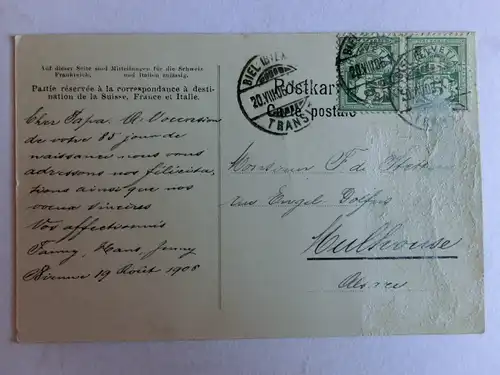 Auf dieser Seite sind Mitteilungen für die Schweiz
Frankreich, und Italien zulässig.
Partie réservée à la correspondance à desti-
nation de la Suisse, France et Italie.
Cher Papa. A l'occasion
de votre 85 jour de
naissance nous vous
adressons nos félicita-
tions ainsi que nos
voeux sincères
Vos affectionnés
Fanny, Hans, Jenny
Bienne 19 Août 1908
BIEL (BIENNE)
20.VIII.08
TRANSIT
Postkarte
Carte postale
Monsieur F de
rue Engel-Dolfus
Mulhouse
Alsace